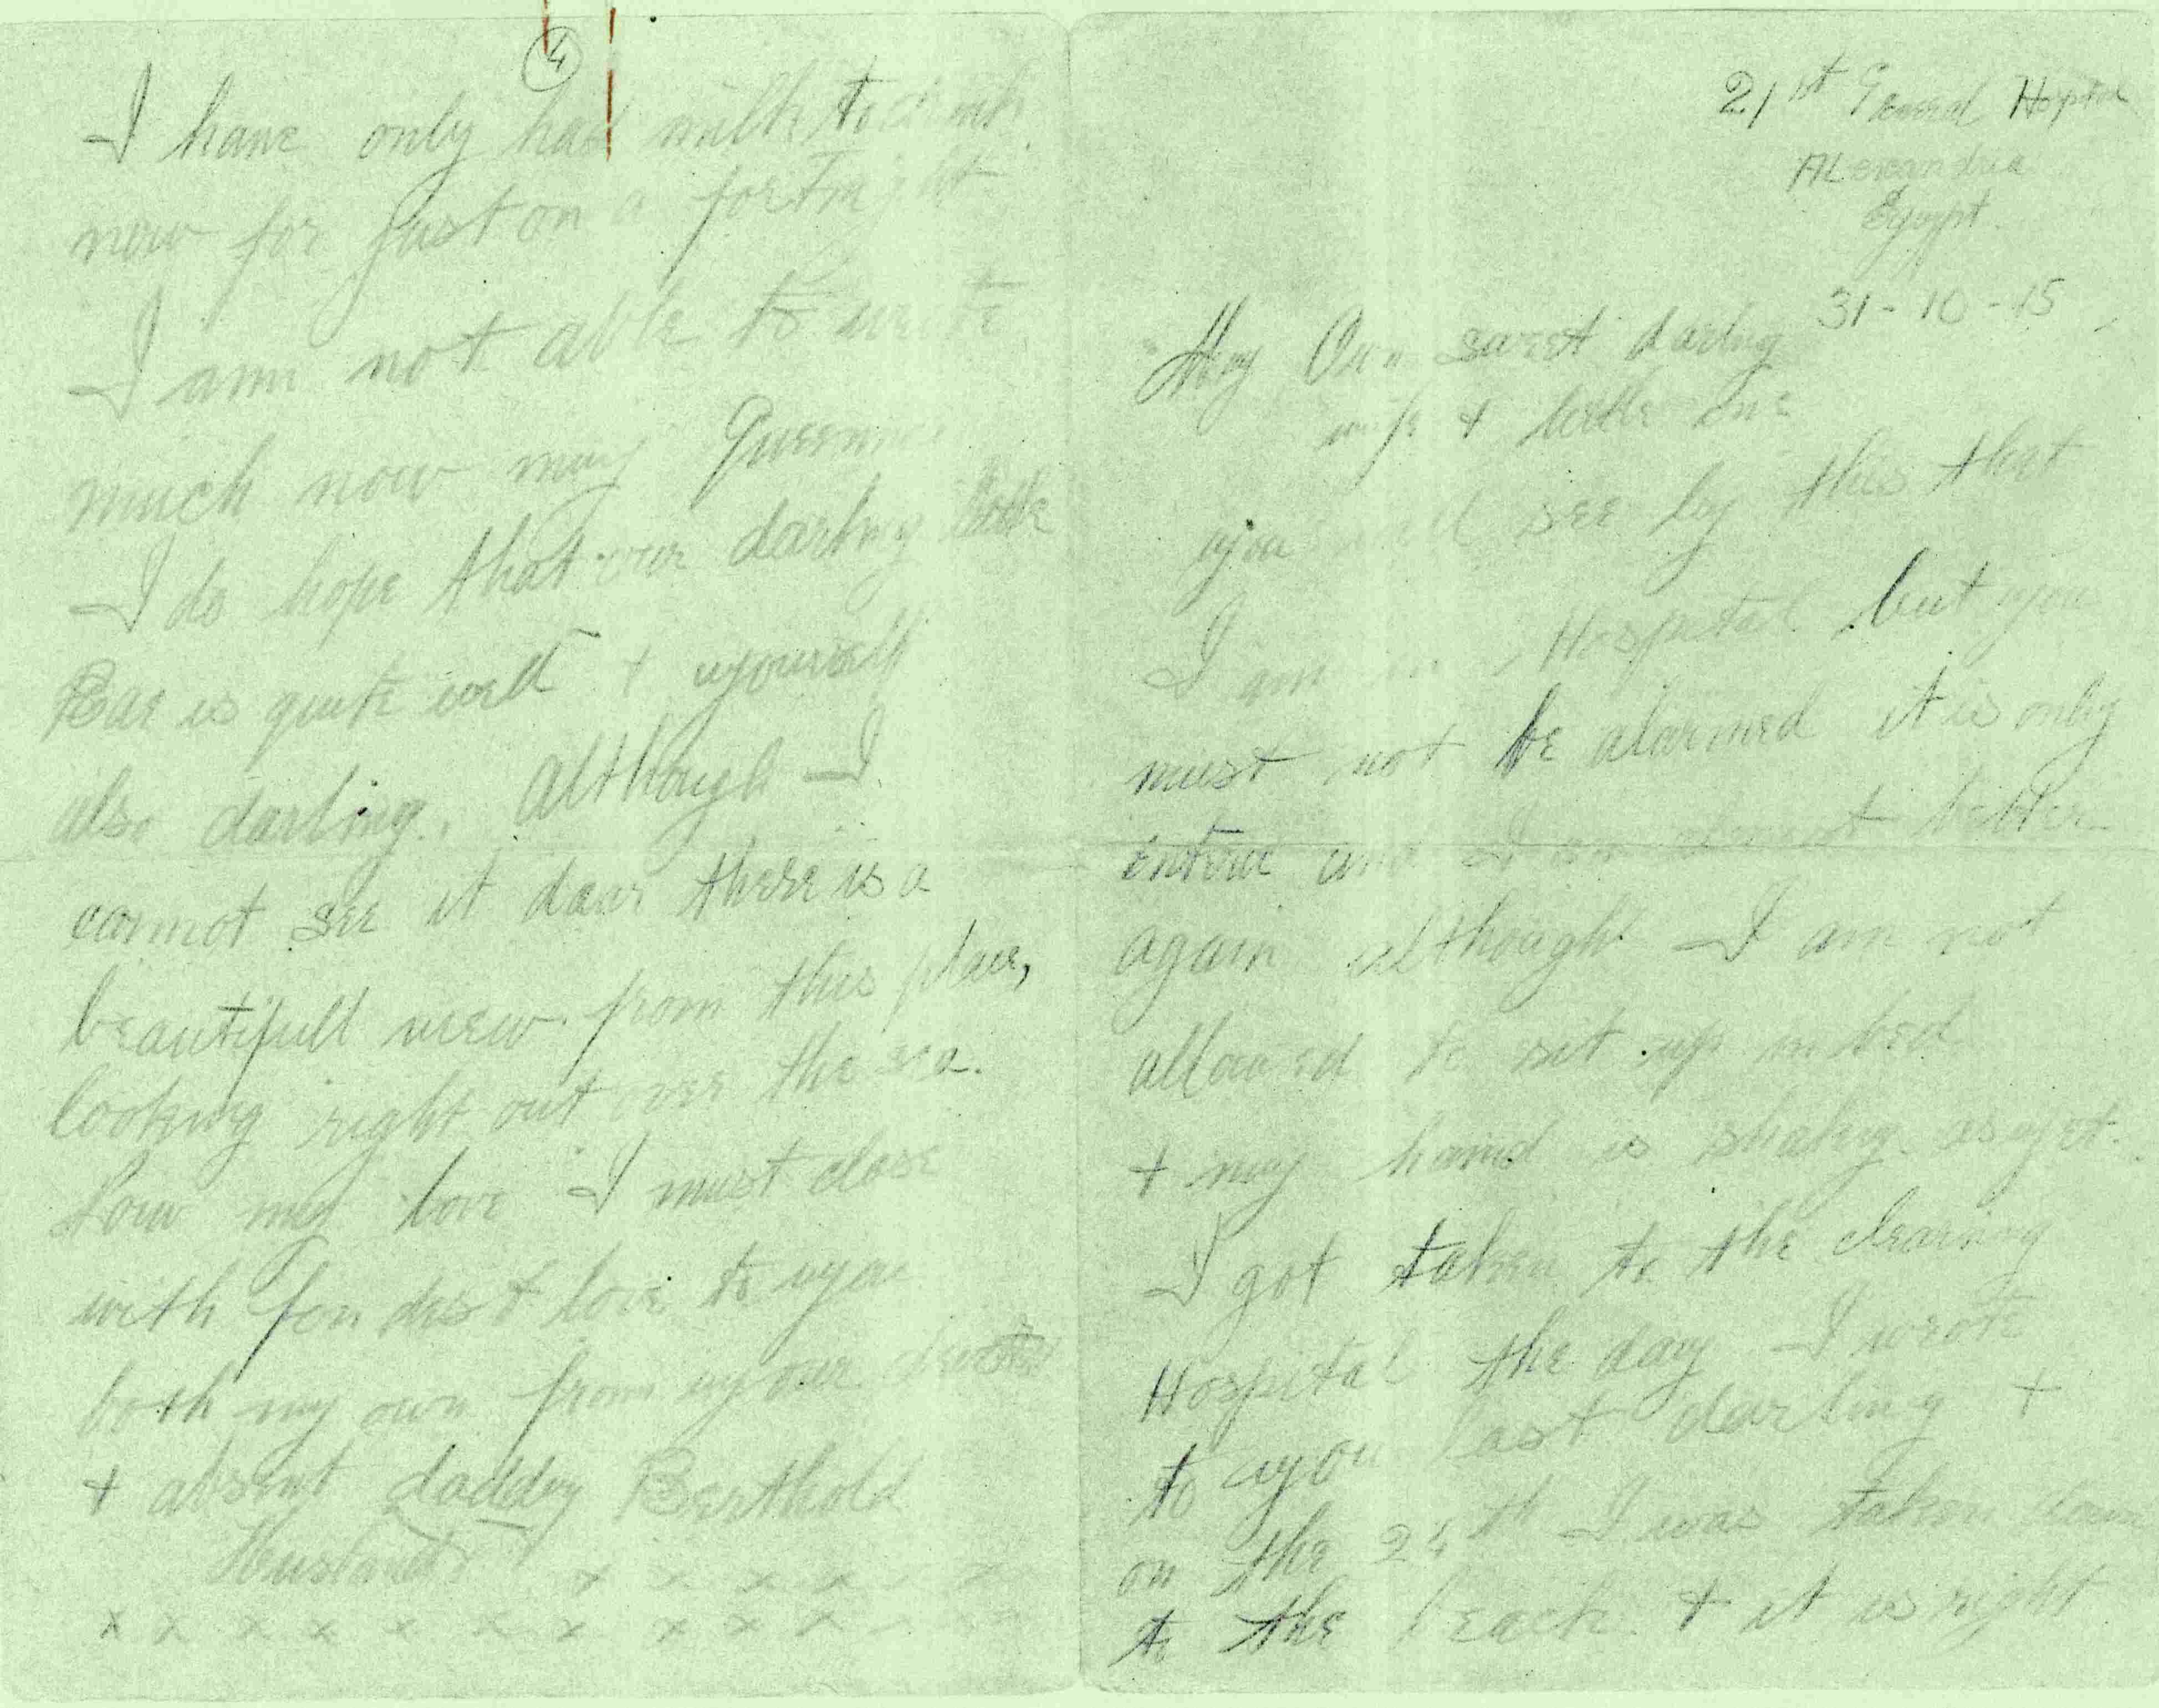 21st General Hospital
Alexandria
Egypt.
31-10-15
My Own sweet darling
wife & little one
you will see by this that
I am in Hospital but you
must not be alarmed it is only
enteric and I am almost better
again although I am not
allowed to sit up in bed
+ my hand is shakey as yet.
I got taken to the clearing
Hospital the day I wrote
to you last darling +
on the 24th I was taken down
to the beach + it is right
4
I have only had milk to drink
now for just on a fortnight
I am not able to write
much now my Queennie
I do hope that our darling little
Rae is quite well + yourself
also darling. Although I
cannot see it dear there is a
beautifull view from this place,
looking right out over the sea.
Now my love I must close
with fondest love to you
both my own from your
+ absent daddy Berthold
Husband x x x x x x
x x x x x x x x x x